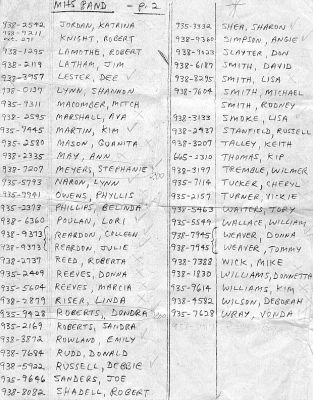 MHS BAND - p. 2
938-2542 JORDAN, KATRINA
938-7211 KNIGHT, ROBERT
ext. 270
938-1295 LAMOTHE, ROBERT
938-2119 LATHAM, JIM
932-3957 LESTER, DEE
938-0137 LYNN, SHANNON
935-9311 MACOMBER, MITCH
938-2595 MARSHALL, AVA
935-7445 MARTIN, KIM
935-2580 MASON, QUANITA
938-2335 MAY, ANN
938-7207 MEYERS, STEPHANIE
935-5793 NARON, LYNN
935-7941 OWENS, PHYLLIS
935-2373 PHILLIPS, BELINDA
938-6360 POULAN, LORI
938-9373 REARDON, COLLEEN
938-9373 REARDON, JULIE
938-2737 REED, ROBERTA
935-2409 REEVES, DONNA
935-5604 REEVES, MARCIA
938-2879 RISER, LINDA
935-9428 ROBERTS, DONDRA
935-2169 ROBERTS, SANDRA
938-3872 ROWLAND, EMILY
938-7684 RUDD, DONALD
938-5922 RUSSELL, DEBBIE
935-9646 SANDERS, JOE
938-8082 SHADELL, ROBERT
935-3332 SHEA, SHARON
938-9360 SIMPSON, ANGIE
938-9023 SLAYTER, DON
938-6187 SMITH, DAVID
938-8295 SMITH, LISA
938-7604 SMITH, MICHAEL
SMITH, RODNEY
938-3133 SMOKE, LISA
938-2937 STANFIELD, RUSSELL
938-3207 TALLEY, KEITH
665-2310 THOMAS, KIP
938-3197 TREMBLE, WILMER
935-7114 TUCKER, CHERYL
935-2157 TURNER, VICKIE
935-5463 WAITERS, TONY
935-5549 WALLACE, WILLIAM
938-7945 WEAVER, DONNA
938-7945 WEAVER, TOMMY
938-7388 WICK, MIKE
938-1830 WILLIAMS, DONNETTA
935-9614 WILLIAMS, KIM
938-9582 WILSON, DEBORAH
935-7628 WRAY, VONDA